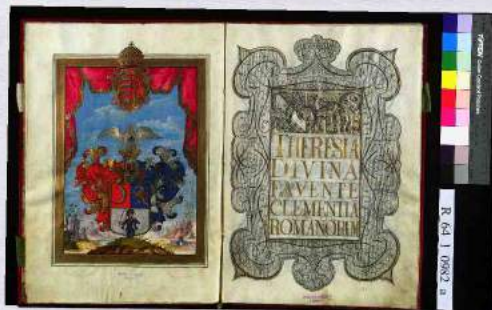 THERESIA
DIVINA
FAVENTE
CLEMENTIA
ROMANORUM
R 64 1 0982 a